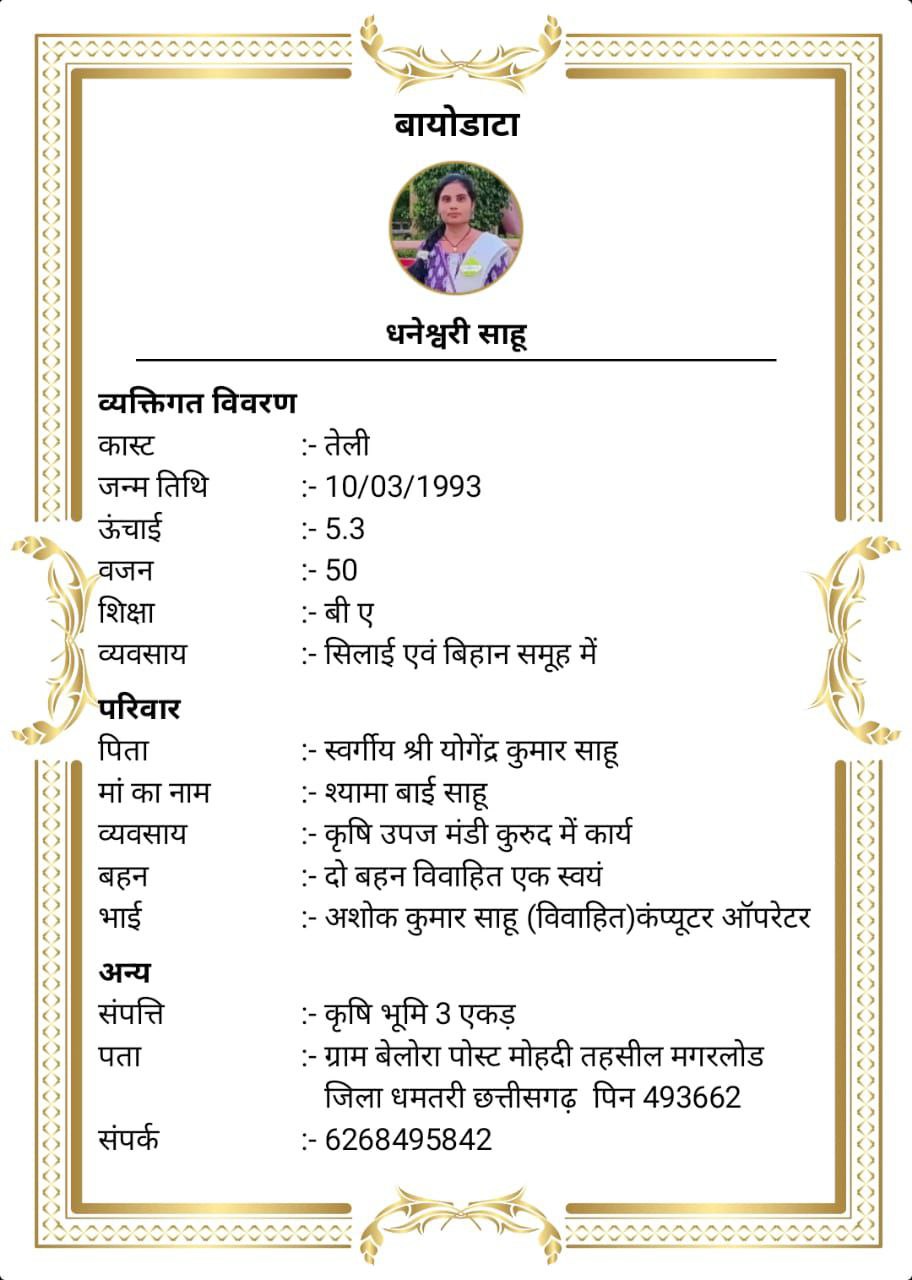 बायोडाटा
धनेश्वरी साहू
व्यक्तिगत विवरण
कास्ट :- तेली
जन्म तिथि :- 10/03/1993
ऊंचाई :- 5.3
वजन :- 50
शिक्षा :- बी ए
व्यवसाय :- सिलाई एवं बिहान समूह में
परिवार
पिता :- स्वर्गीय श्री योगेंद्र कुमार साहू
मां का नाम :- श्यामा बाई साहू
व्यवसाय :- कृषि उपज मंडी कुरुद में कार्य
बहन :- दो बहन विवाहित एक स्वयं
भाई :- अशोक कुमार साहू (विवाहित)कंप्यूटर ऑपरेटर
अन्य
संपत्ति :- कृषि भूमि 3 एकड़
पता :- ग्राम बेलोरा पोस्ट मोहदी तहसील मगरलोड
जिला धमतरी छत्तीसगढ़ पिन 493662
संपर्क :- 6268495842